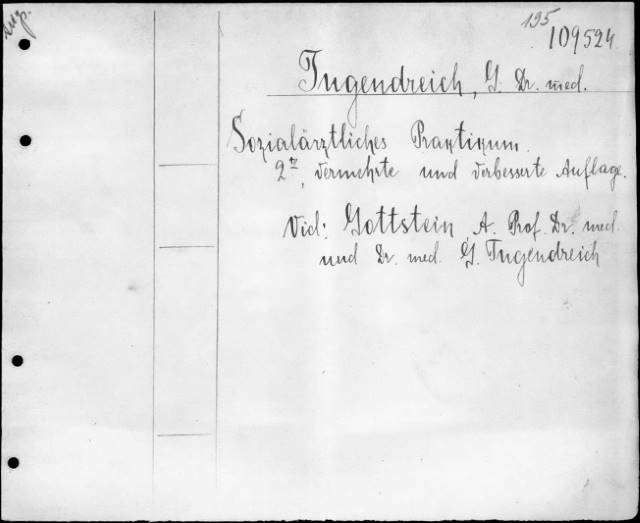 Aug.
195
109524
Tugendreich, G. Dr. med.
Sozialärztliches Praktikum.
2te, vermehrte und verbesserte Auflage.
Vid: Gottstein A. Prof. Dr. med.
und Dr. med. G. Tugendreich